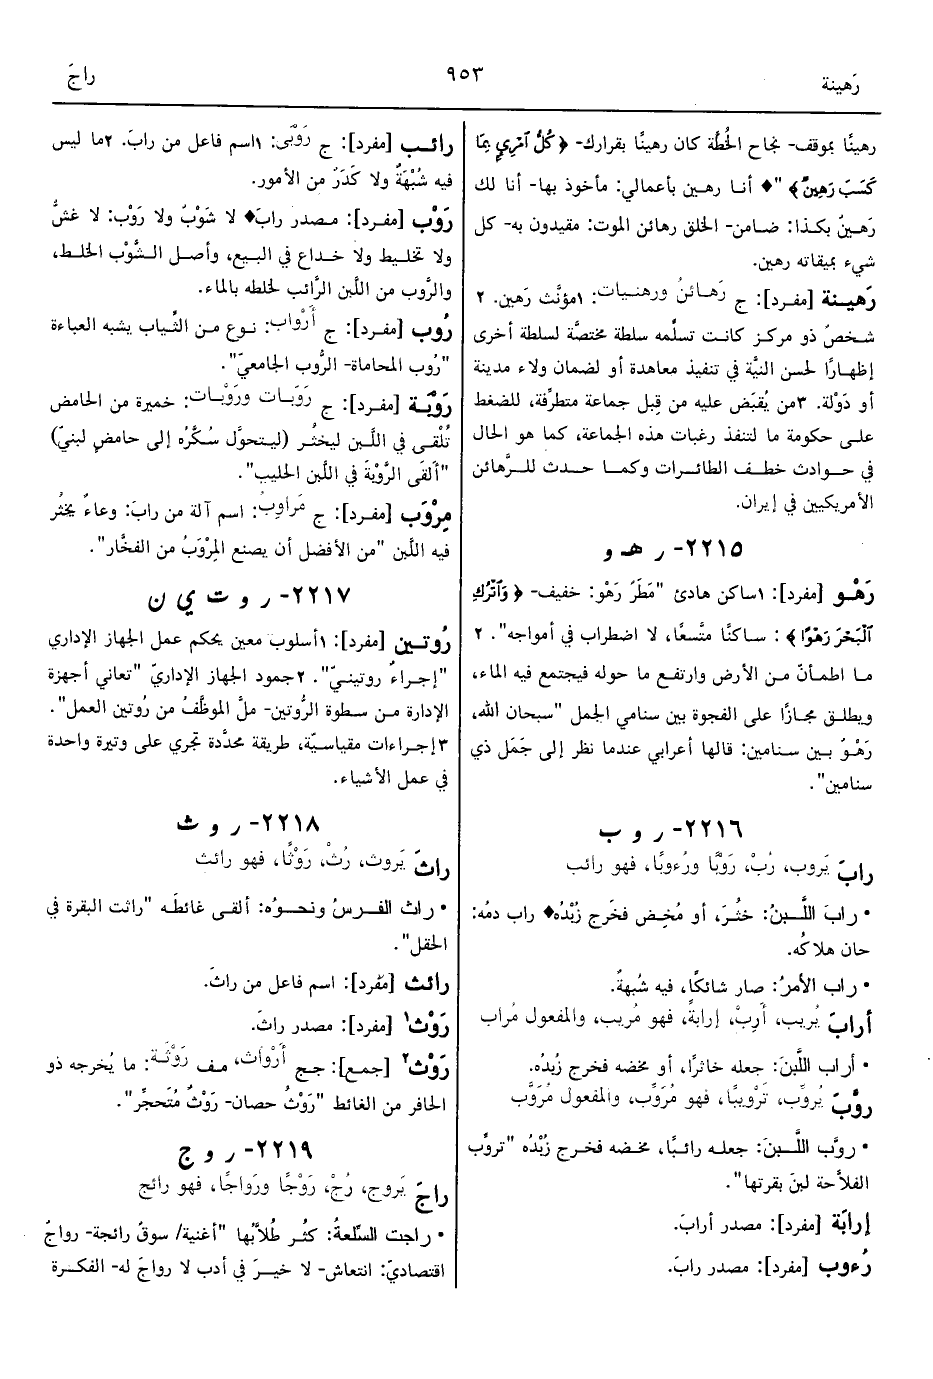 رَهينة
٩٥٣
راجَ
رهينًا بموقف- نجاح الخُطَّة كان رهينًا بقرارك- ﴿ كُلُّ امْرِئٍ بِمَا
كَسَبَ رَهِينٌ ﴾ "♦ أنـا رهـين بأعمالي: مأخوذ بهـا- أنـا لك
رَهينٌ بكـذا: ضـامن- الخلق رهـائن الموت: مقيدون به- كل
شيء بميقاته رهين.
رَهينـة [مفـرد]: ج رَهـائـنُ ورهنيـات: ١مؤنَّث رَهين. ٢
شخصٌ ذو مركز كانـت تسلَّمه سلطة مختصَّة لسلطة أخرى
إظهـارًا لحسن النيَّة في تنفيذ معاهدة أو لضمان ولاء مدينة
أو دَوْلة. ٣من يُقبَض عليه من قِبل جماعة متطرِّفة، للضغط
علـى حكومة ما لتنفذ رغبات هذه الجماعة، كما هو الحال
في حـوادث خطـف الطائـرات وكمـا حـدث للـرَّهائن
الأمريكيين في إيران.
٢٢١٥- ر هـ و
رَهْـو [مفرد]: ١ساكن هادئ "مَطَرٌ رَهْو: خفيف- ﴿ وَاتْرُكِ
الْبَحْرَ رَهْوًا ﴾ : سـاكنًا متَّسعًا، لا اضطراب في أمواجه". ٢
مـا اطمـأنّ مـن الأرض وارتفـع ما حوله فيجتمع فيه الماء،
ويطلـق مجـازًا علـى الفجوة بين سنامي الجمل "سبحان الله،
رَهْـوٌ بـين سـنامين: قالهـا أعرابي عندما نظر إلى جَمَل ذي
سنامين".
٢٢١٦- ر و ب
رابَ يَروب، رُبْ، رَوْبًا ورُءوبًا، فهو رائب
• رابَ اللَّـبنُ: خثُرَ، أو مُخِض فخَرج زُبْدُه♦ راب دمُه:
حان هلاكُه.
• راب الأمرُ: صار شائكًا، فيه شُبهةٌ.
أرابَ يُريب، أَرِبْ، إرابةً، فهو مُريب، والمفعول مُراب
• أراب اللَّبنَ: جعله خاثرًا، أو مخضه فخرج زُبدُه.
روَّبَ يُروِّب، تَرْويبًا، فهو مُرَوِّب، والمفعول مُرَوَّب
• روَّب اللَّـبنَ: جعلـه رائـبًا، مخـضه فخـرج زُبْدُه "تروِّب
الفلاَّحة لبنَ بقرتها".
إرابَة [مفرد]: مصدر أرابَ.
رُءوب [مفرد]: مصدر رابَ.
رائـب [مفرد]: ج رَوْبَى: ١اسم فاعل من رابَ. ٢ما ليس
فيه شُبْهَةٌ ولا كَدَرٌ من الأمور.
رَوْب [مفرد]: مصدر رابَ♦ لا شَوْبٌ ولا رَوْب: لا غشَّ
ولا تخلـيط ولا خـداع في البـيع، وأصـل الشَّوْب الخلـط،
والرَّوب من اللَّبن الرَّائب لخلطه بالماء.
رُوب [مفرد]: ج أرْواب: نـوع مـن الثِّياب يشبه العباءة
"رُوب المحاماة- الرُّوب الجامعيّ".
رَوْبَـة [مفـرد]: ج رَوَبـات ورَوْبـات: خميرة من الحامض
تُلْقـى في اللَّـبن ليخثُـر (ليـتحوَّل سُكَّرُه إلى حامضٍ لبنيّ)
"ألقى الرَّوْبة في اللَّبن الحليب".
مِرْوَب [مفـرد]: ج مَراوِبُ: اسم آلة من رابَ: وعاءٌ يخثُر
فيه اللَّبن "من الأفضل أن يصنع المِرْوَبُ من الفخَّار".
٢٢١٧- ر و ت ي ن
رُوتـين [مفرد]: ١أسلوب معين يحكم عمل الجهاز الإداري
"إجـراءٌ روتينـيّ". ٢جمود الجهاز الإداريّ "تعاني أجهزة
الإدارة مـن سـطوة الرُّوتين- ملَّ الموظَّفُ من رُوتين العمل".
٣إجـراءات مقياسـيّة، طريقة محدَّدة تجري على وتيرة واحدة
في عمل الأشياء.
٢٢١٨- ر و ث
راثَ يَروث، رُثْ، رَوْثًا، فهو رائث
• راث الفـرسُ ونحـوُه: ألقـى غائطَه "راثت البقرة في
الحقل".
رائث [مفرد]: اسم فاعل من راثَ.
رَوْث١ [مفرد]: مصدر راثَ.
رَوْث٢ [جمـع]: جـج أرْواث، مـف رَوْثَـة: مـا يُخرجه ذو
الحافر من الغائط "رَوْثُ حصان- رَوْثٌ مُتَحجِّر".
٢٢١٩- ر و ج
راجَ يَروج، رُجْ، رَوْجًا ورَواجًا، فهو رائج
• راجـت السِّلعةُ: كثُـر طُلاَّبُها "أغنية/ سوقٌ رائجة- رواجٌ
اقتصاديّ: انتعاش- لا خيـرَ في أدب لا رواجَ له- الفكـرة